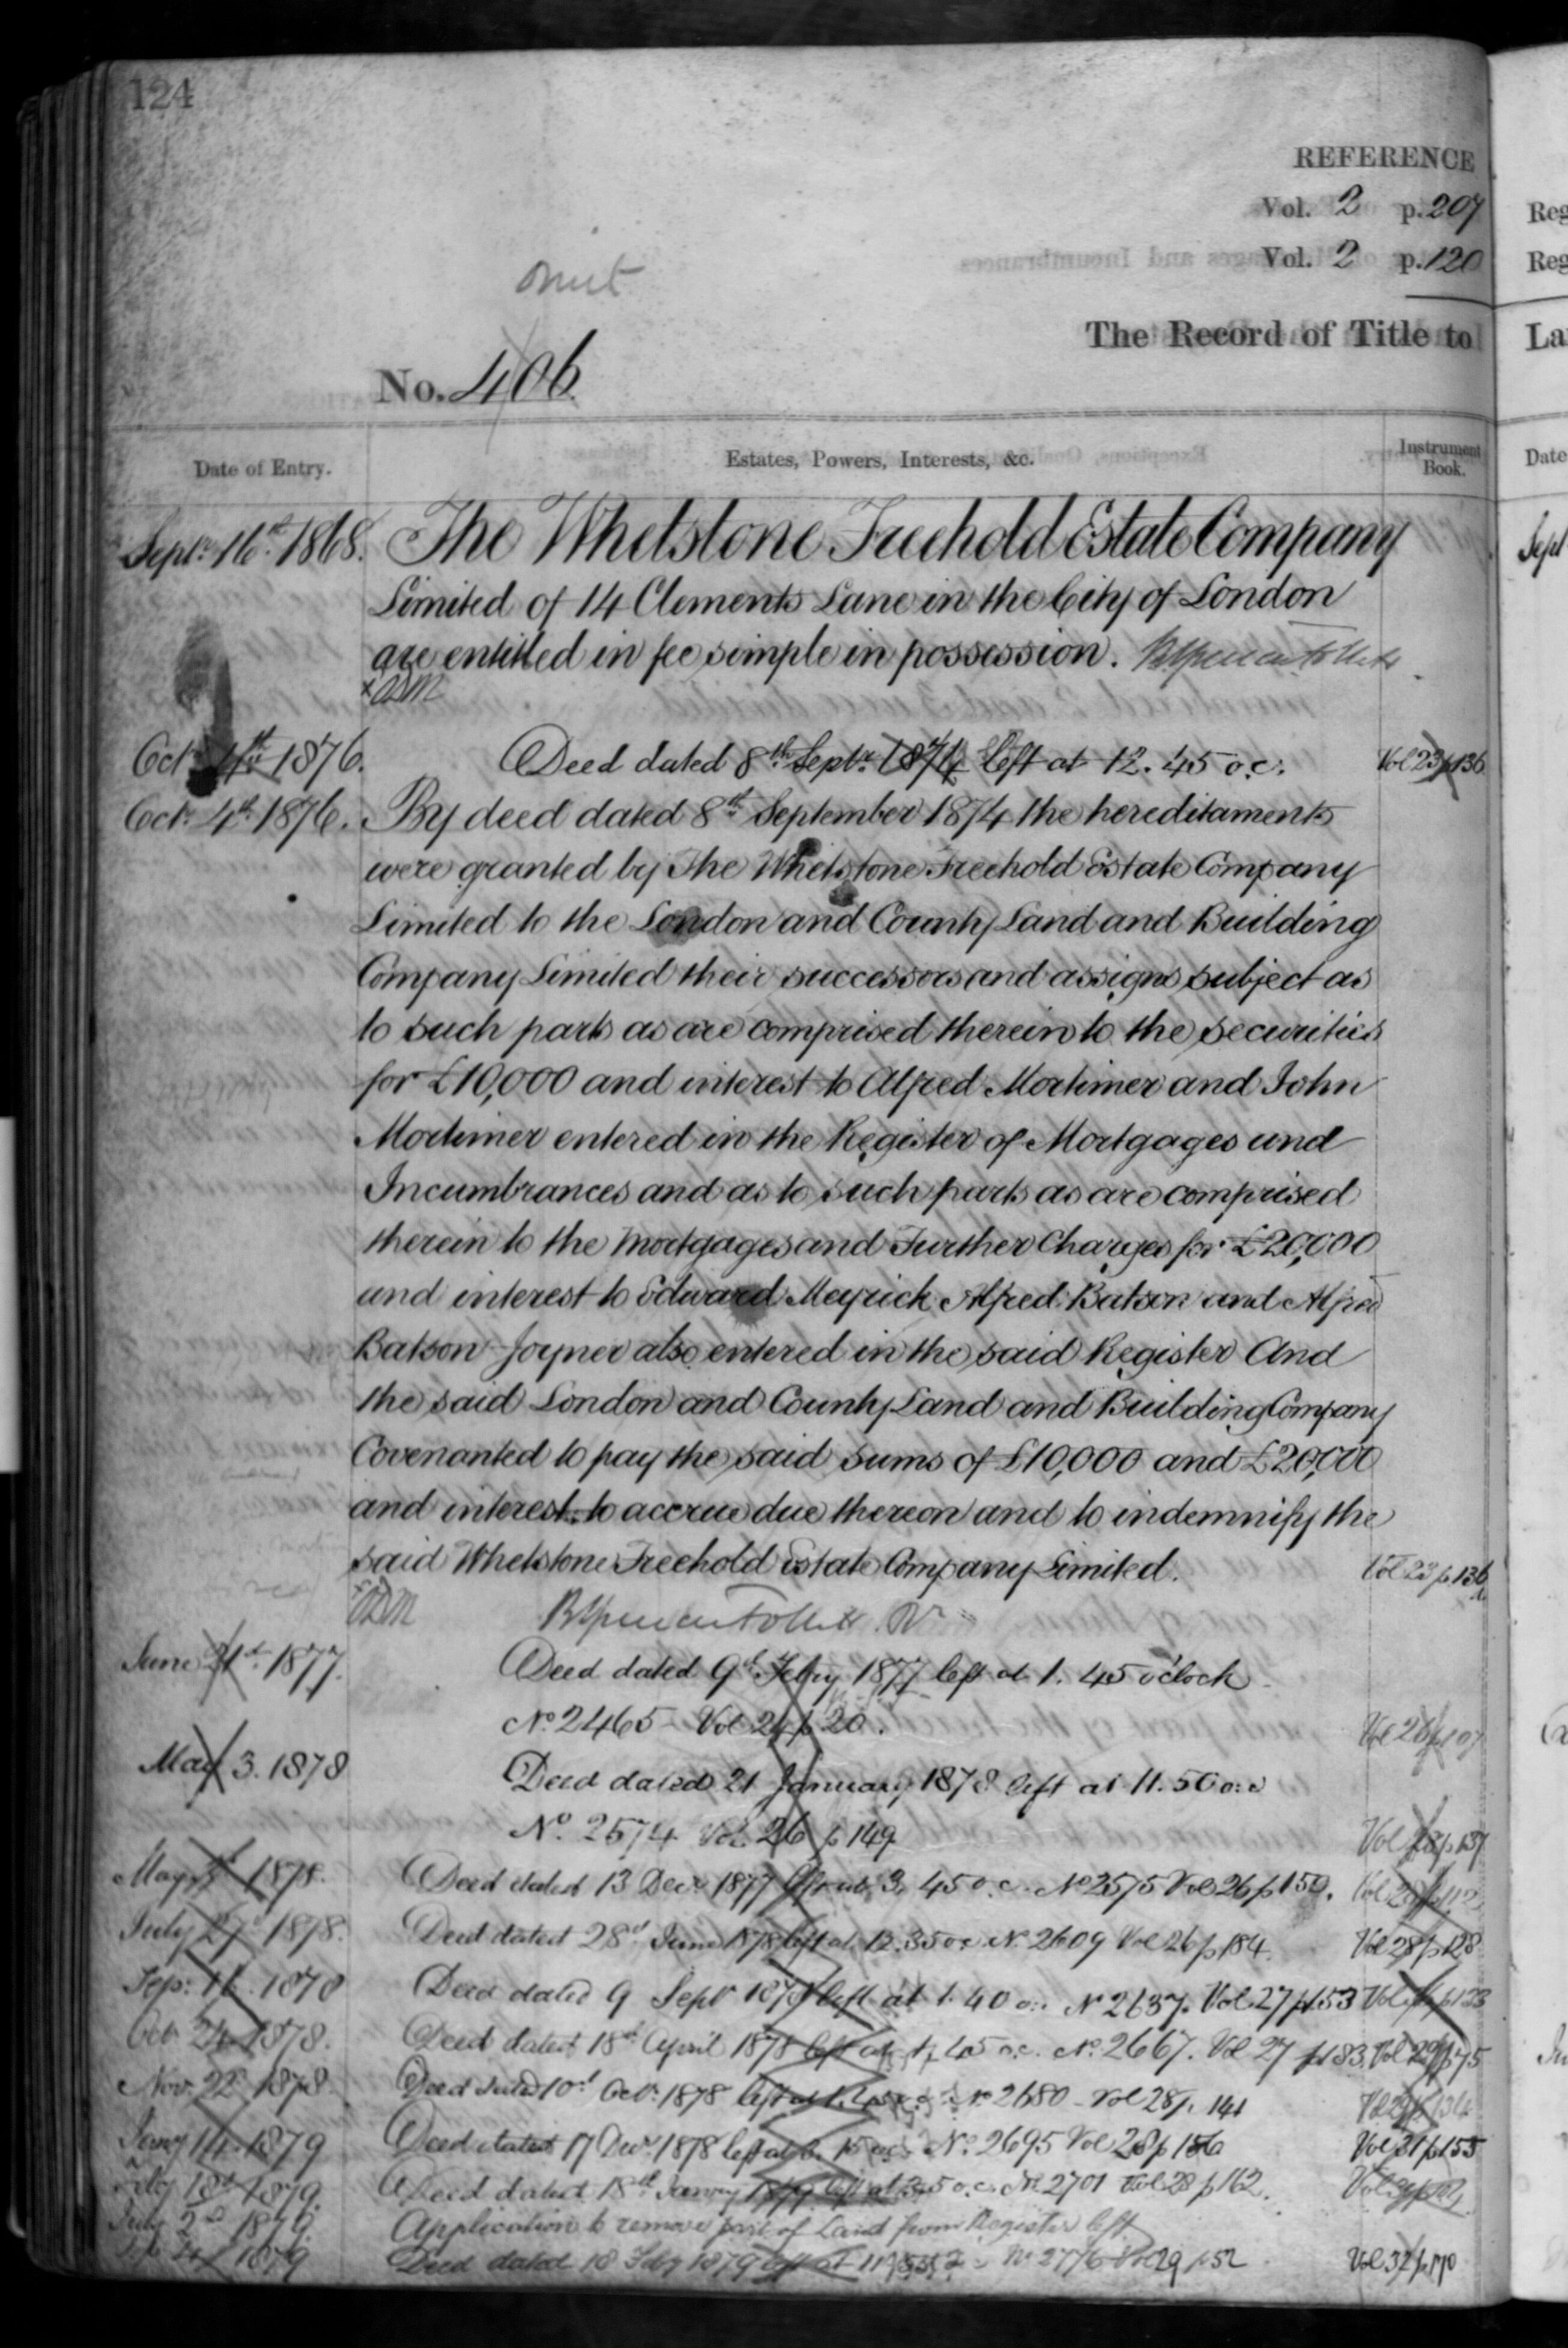 124
REFERENCE
Vol. 2 p. 207
Vol. 2 p. 120
omit
The Record of Title to
No. 406.
Date of Entry. Estates, Powers, Interests, &c. Instrument Book.
Septr. 16th 1868. The Whetstone Freehold Estate Company
Limited of 14 Clements Lane in the City of London
are entitled in fee simple in possession.
Octr. 4th 1876. Deed dated 8th Septr. 1874 left at 12.45 o.c. Vol 23 p 136
Octr. 4th 1876. By deed dated 8th September 1874 the hereditaments
were granted by The Whetstone Freehold Estate Company
Limited to the London and County Land and Building
Company Limited their successors and assigns subject as
to such parts as are comprised therein to the securities
for £10,000 and interest to Alfred Mortimer and John
Mortimer entered in the Register of Mortgages and
Incumbrances and as to such parts as are comprised
therein to the Mortgages and Further Charges for £20,000
and interest to Edward Meyrick Alfred Batson and Alfred
Batson Joyner also entered in the said Register And
the said London and County Land and Building Company
Covenanted to pay the said sums of £10,000 and £20,000
and interest to accrue due thereon and to indemnify the
said Whetstone Freehold Estate Company Limited. Vol 23 p 136
June 21st 1877. Deed dated 9th Feby 1877 left at 1.45 o'clock
No. 2465 Vol 24 p 20. Vol 26 p 107
May 3. 1878 Deed dated 21 January 1878 left at 11.50 o.c
No. 2574 Vol. 26 p 149 Vol 28 p 137
May 1878. Deed dated 13 Decr 1877 left at 3.45 o.c. No 2575 Vol 26 p 150.
July 27th 1878. Deed dated 28th June 1878 left at 12.35 o.c No. 2609 Vol 26 p 184. Vol 28 p 128
Sep: 16. 1878 Deed dated 9 Septr 1878 left at 1.40 o.c. No 2637. Vol 27 p 153
Oct 24 1878. Deed dated 18th April 1878 left at 1.45 o.c. No. 2667. Vol 27 p 183. Vol 29 p 75
Nov. 22 1878. Deed dated 10th Octr. 1878 left at No 2680 Vol 28 p. 141
Jany 14 1879 Deed dated 17 Decr. 1878 left at No. 2695 Vol 28 p 156 Vol 31 p 155
Feby 18th 1879. Deed dated 18th January 1879 left at No 2701 Vol 28 p 162.
July 2nd 1879. Application to remove part of Land from Register left
1879 Deed dated 18 Feby 1879 left at No 2776 Vol 29 p 52 Vol 32 p 170